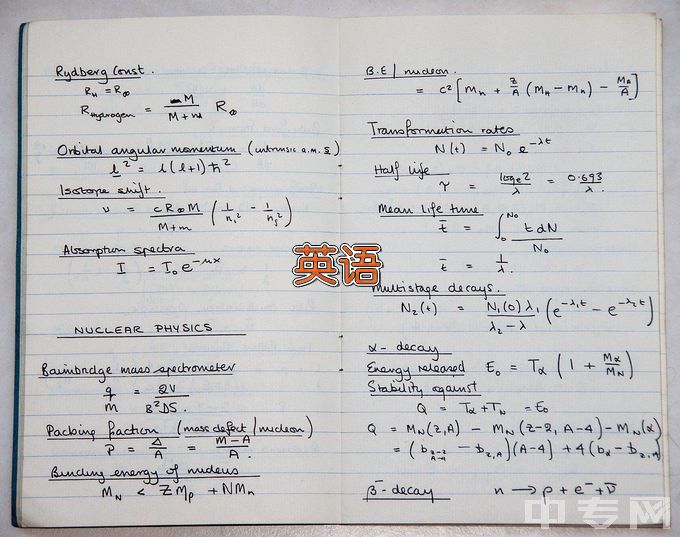 Rydberg Const.
R_H = R_∞
R_Hydrogen = M / (M + m) R_∞
Orbital angular momentum (intrinsic a.m. s)
l² = l(l+1)ħ²
Isotope shift.
ν = cR∞M / (M+m) (1/n_i² - 1/n_f²)
Absorption spectra
I = I₀e^(-μx)
NUCLEAR PHYSICS
Bainbridge mass spectrometer
q/m = 2V / B²DS.
Packing fraction (mass defect/nucleon)
P = Δ/A = (M-A)/A.
Binding energy of nucleus
M_N < ZM_p + NM_n
B.E/nucleon.
= c² [M_n + Z/A (M_H - M_n) - M_A/A]
Transformation rates
N(t) = N₀ e^(-λt)
Half life
τ = log_e 2/λ = 0.693/λ.
Mean life time
t̄ = ∫₀^N₀ t dN / N₀
t̄ = 1/λ.
Multistage decays.
N₂(t) = N₁(0)λ₁ / (λ₂-λ) (e^(-λ₁t) - e^(-λ₂t))
α-decay
Energy released E₀ = T_α (1 + M_α/M_N)
Stability against
Q = T_α + T_N = E₀
Q = M_N(Z,A) - M_N(Z-2, A-4) - M_N(α)
= (b_(Z-2, A-4) - b_(Z,A))(A-4) + 4(b_α - b_(Z,A))
β⁻-decay n → p + e⁻ + ν̄
英语
中专网